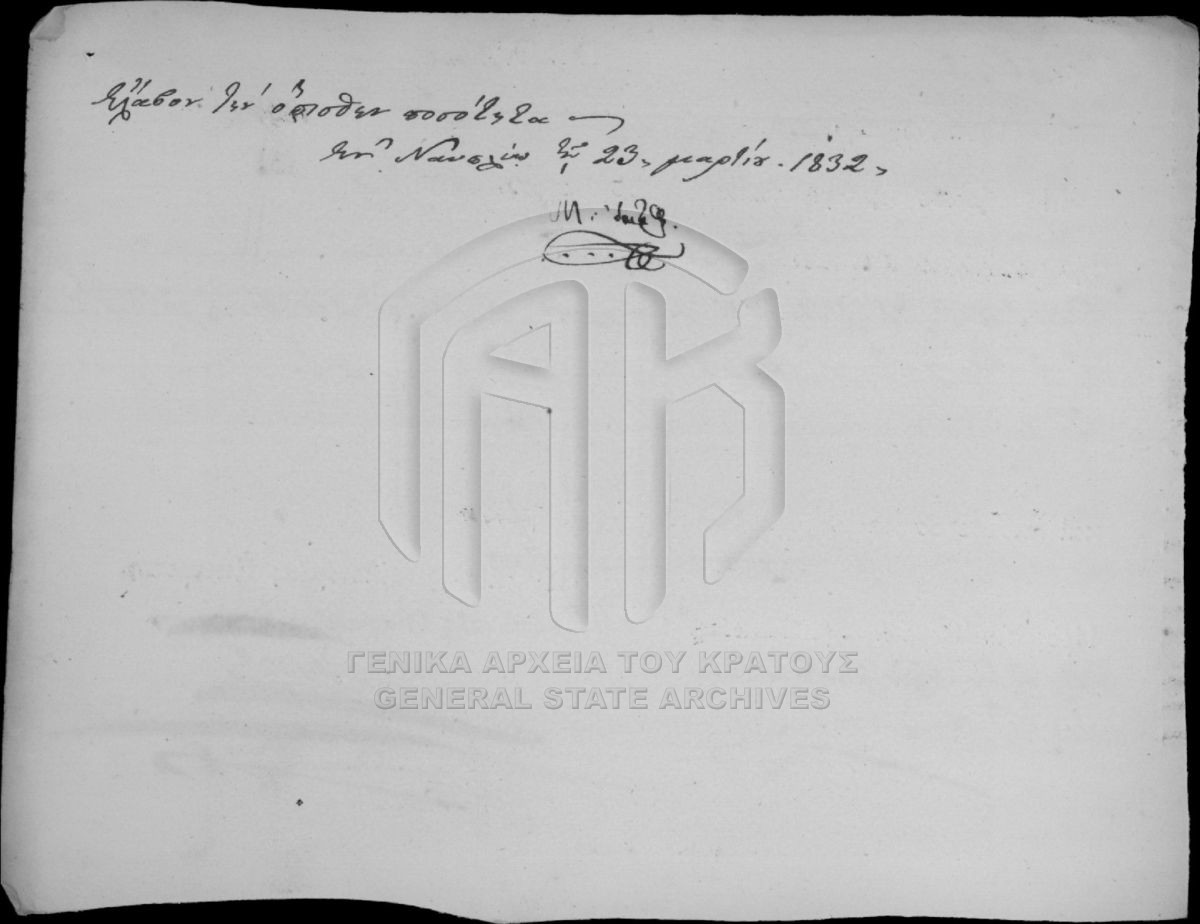 ἔλαβον τὴν ὄπισθεν ποσότητα
τῇ 23, μαρτίου. 1832,
Μ.
ΓΕΝΙΚΑ ΑΡΧΕΙΑ ΤΟΥ ΚΡΑΤΟΥΣ
GENERAL STATE ARCHIVES